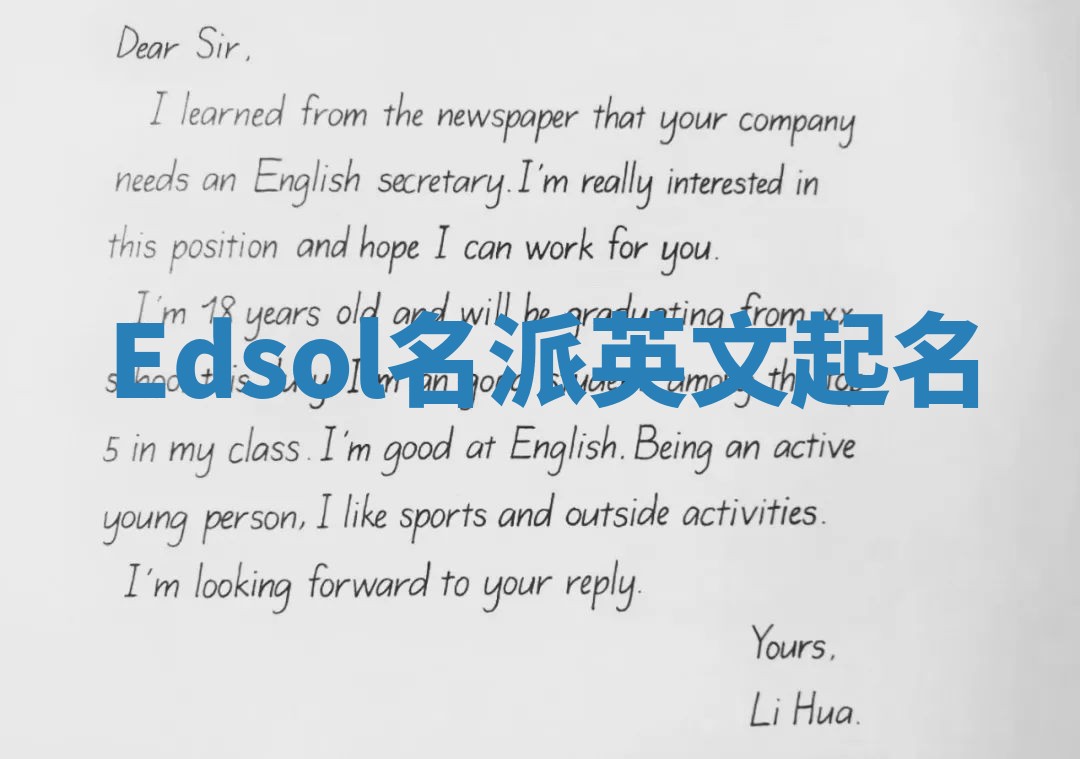 Dear Sir,
I learned from the newspaper that your company
needs an English secretary. I'm really interested in
this position and hope I can work for you.
I'm 18 years old and will be graduating from xx
Edsol名派英文起名
school this July. I'm an good student among the top
5 in my class. I'm good at English. Being an active
young person, I like sports and outside activities.
I'm looking forward to your reply.
Yours,
Li Hua.